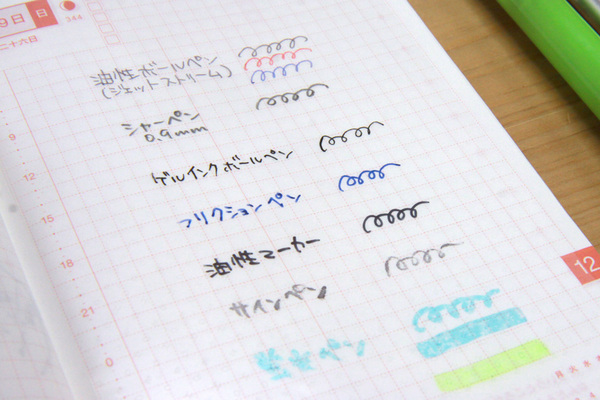 9日 日
344
二十六日
油性ボールペン
(ジェットストリーム)
シャーペン
0.9mm
9
ゲルインクボールペン
12
フリクションペン
15
油性マーカー
18
サインペン
21
蛍光ペン
0
12
月 火 水